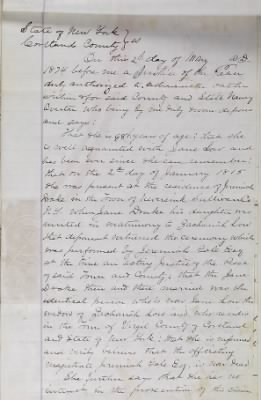 State of New York }
Cortland County } ss
On this 2d day of May A.D.
1874 before me a Justice of the Peace
duly authorized to administer oaths
within & for said County and State Nancy
who being by me duly sworn deposes
and says:
That she is years of age: that she
is well acquainted with Jane Low and
has been ever since she can remember:
that on the 2nd day of January 1815
she was present at the residence of Jeremiah
Doake in the Town of
N.Y. when Jane Doake his daughter was
united in matrimony to Zachariah Low
that deponent witnessed the ceremony which
was performed by Jeremiah Gale Esq
at the time an acting Justice of the Peace
of said Town and County; that the Jane
Doake then and there married was the
identical person who is now Jane Low the
widow of Zachariah Low and who resides
in the Town of Virgil County of Cortland
and State of New York; that she is informed
and verily believes that the officiating
magistrate Jeremiah Gale Esq. is now dead
She further says that she has no
interest in the prosecution of the claim